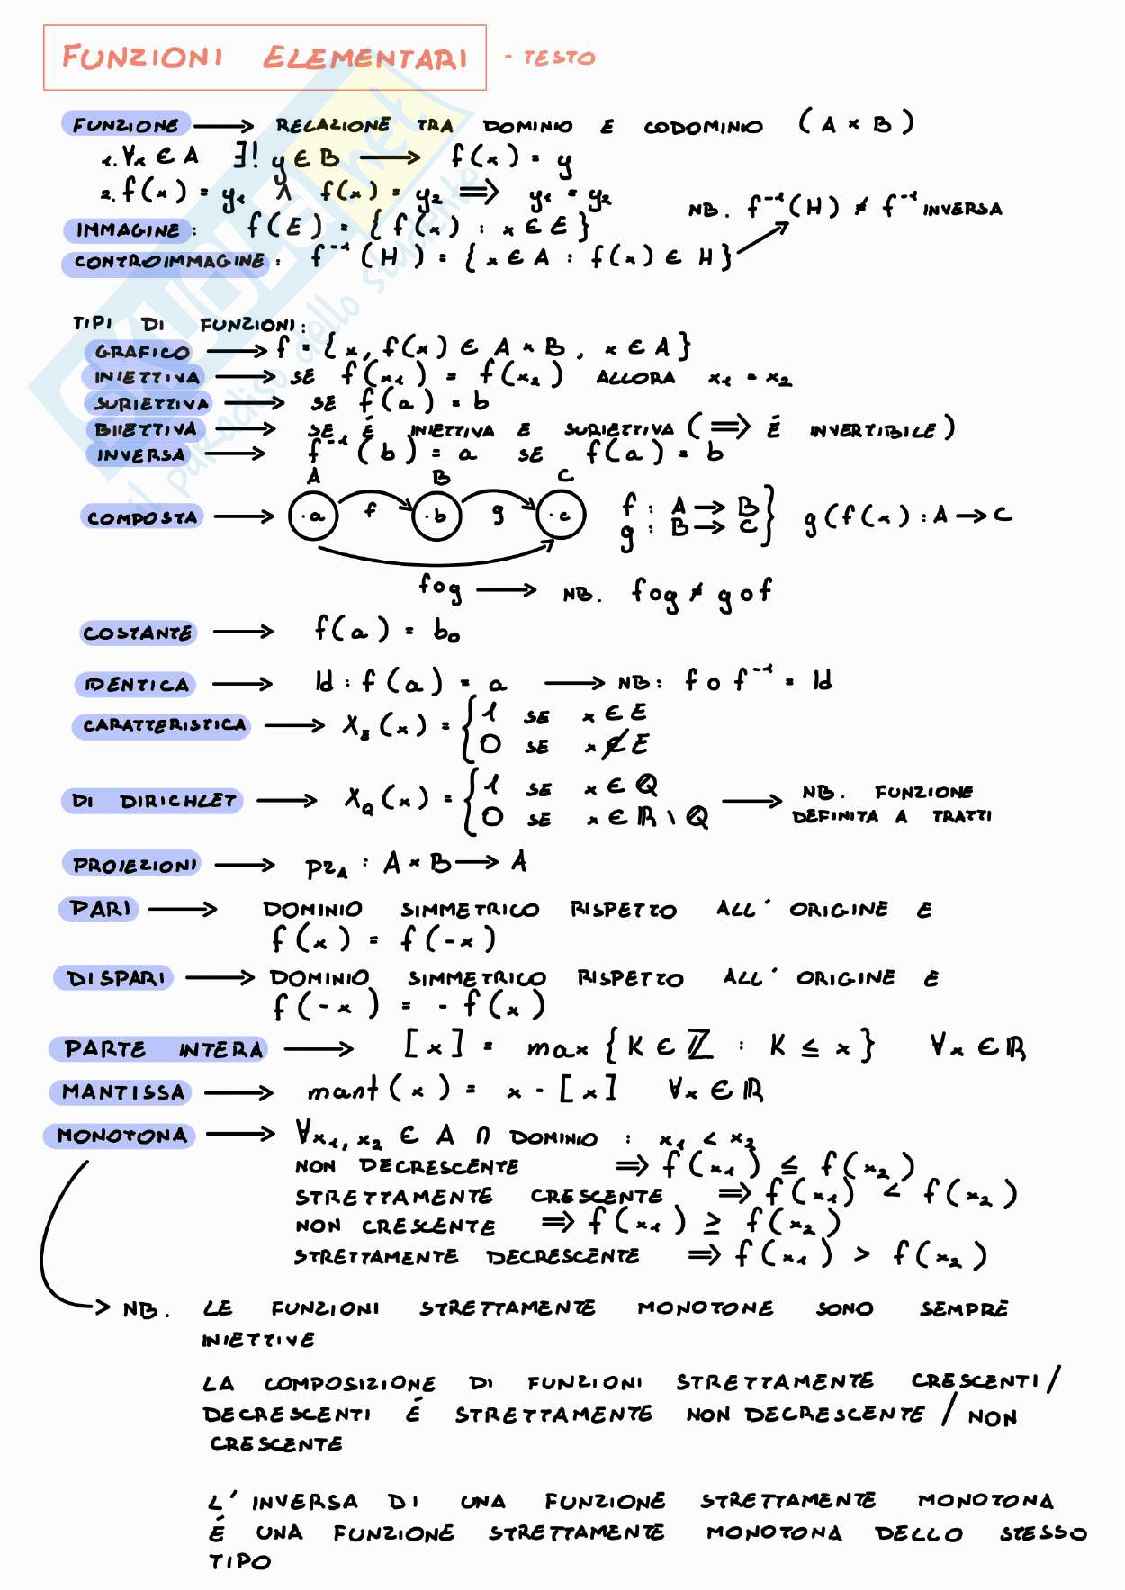 FUNZIONI ELEMENTARI - TESTO
FUNZIONE → RELAZIONE TRA DOMINIO E CODOMINIO (A × B)
1. ∀x ∈ A ∃! y ∈ B → f(x) = y
2. f(x) = y₁ ∧ f(x) = y₂ ⇒ y₁ = y₂
NB. f⁻¹(H) ≠ f⁻¹ INVERSA
IMMAGINE: f(E) = {f(x) : x ∈ E}
CONTROIMMAGINE: f⁻¹(H) = {x ∈ A : f(x) ∈ H}
TIPI DI FUNZIONI:
GRAFICO → f = {x, f(x) ∈ A × B, x ∈ A}
INIETTIVA → SE f(x₁) = f(x₂) ALLORA x₁ = x₂
SURIETTIVA → SE f(a) = b
BIIETTIVA → SE É INIETTIVA E SURIETTIVA (⇒ É INVERTIBILE)
INVERSA → f⁻¹(b) = a SE f(a) = b
A B C
COMPOSTA → ·a f ·b g ·c f : A → B g : B → C } g(f(x) : A → C
fog → NB. fog ≠ gof
COSTANTE → f(a) = b₀
IDENTICA → Id : f(a) = a → NB: f o f⁻¹ = Id
CARATTERISTICA → X_E(x) = { 1 SE x ∈ E
0 SE x ∉ E
DI DIRICHLET → X_Q(x) = { 1 SE x ∈ ℚ
0 SE x ∈ ℝ \ ℚ → NB. FUNZIONE
DEFINITA A TRATTI
PROIEZIONI → pr_A : A × B → A
PARI → DOMINIO SIMMETRICO RISPETTO ALL' ORIGINE E
f(x) = f(-x)
DISPARI → DOMINIO SIMMETRICO RISPETTO ALL' ORIGINE E
f(-x) = - f(x)
PARTE INTERA → [x] = max {K ∈ ℤ : K ≤ x} ∀x ∈ ℝ
MANTISSA → mant(x) = x - [x] ∀x ∈ ℝ
MONOTONA → ∀x₁, x₂ ∈ A ∩ DOMINIO : x₁ < x₂
NON DECRESCENTE ⇒ f(x₁) ≤ f(x₂)
STRETTAMENTE CRESCENTE ⇒ f(x₁) < f(x₂)
NON CRESCENTE ⇒ f(x₁) ≥ f(x₂)
STRETTAMENTE DECRESCENTE ⇒ f(x₁) > f(x₂)
→ NB. LE FUNZIONI STRETTAMENTE MONOTONE SONO SEMPRE
INIETTIVE
LA COMPOSIZIONE DI FUNZIONI STRETTAMENTE CRESCENTI/
DECRESCENTI É STRETTAMENTE NON DECRESCENTE / NON
CRESCENTE
L' INVERSA DI UNA FUNZIONE STRETTAMENTE MONOTONA
É UNA FUNZIONE STRETTAMENTE MONOTONA DELLO STESSO
TIPO
SKUOLA.net
il paradiso dello studente